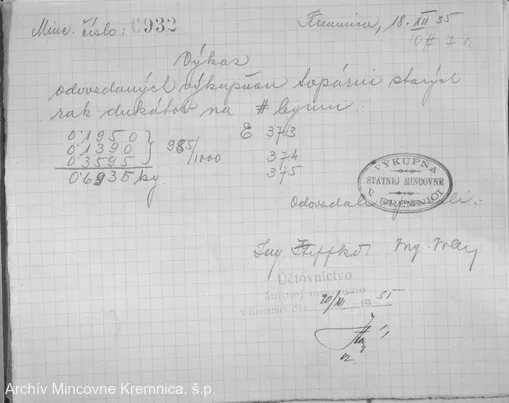 Minc. číslo: 6932
Kremnica, 18. XII 35
Výkaz
odovzdaných výkupňou
na # legúru
0'1950
0'1390
0'3595
0'6935 kg
985/1000
E 373
374
375
VÝKUPŇA
ŠTÁTNEJ MINCOVNE
V KREMNICI
Odovzdali
Ing.
Ing.
Účtovníctvo
štátnej mincovne
v Kremnici, dňa
20/XII 1935
Archív Mincovne Kremnica, š.p.